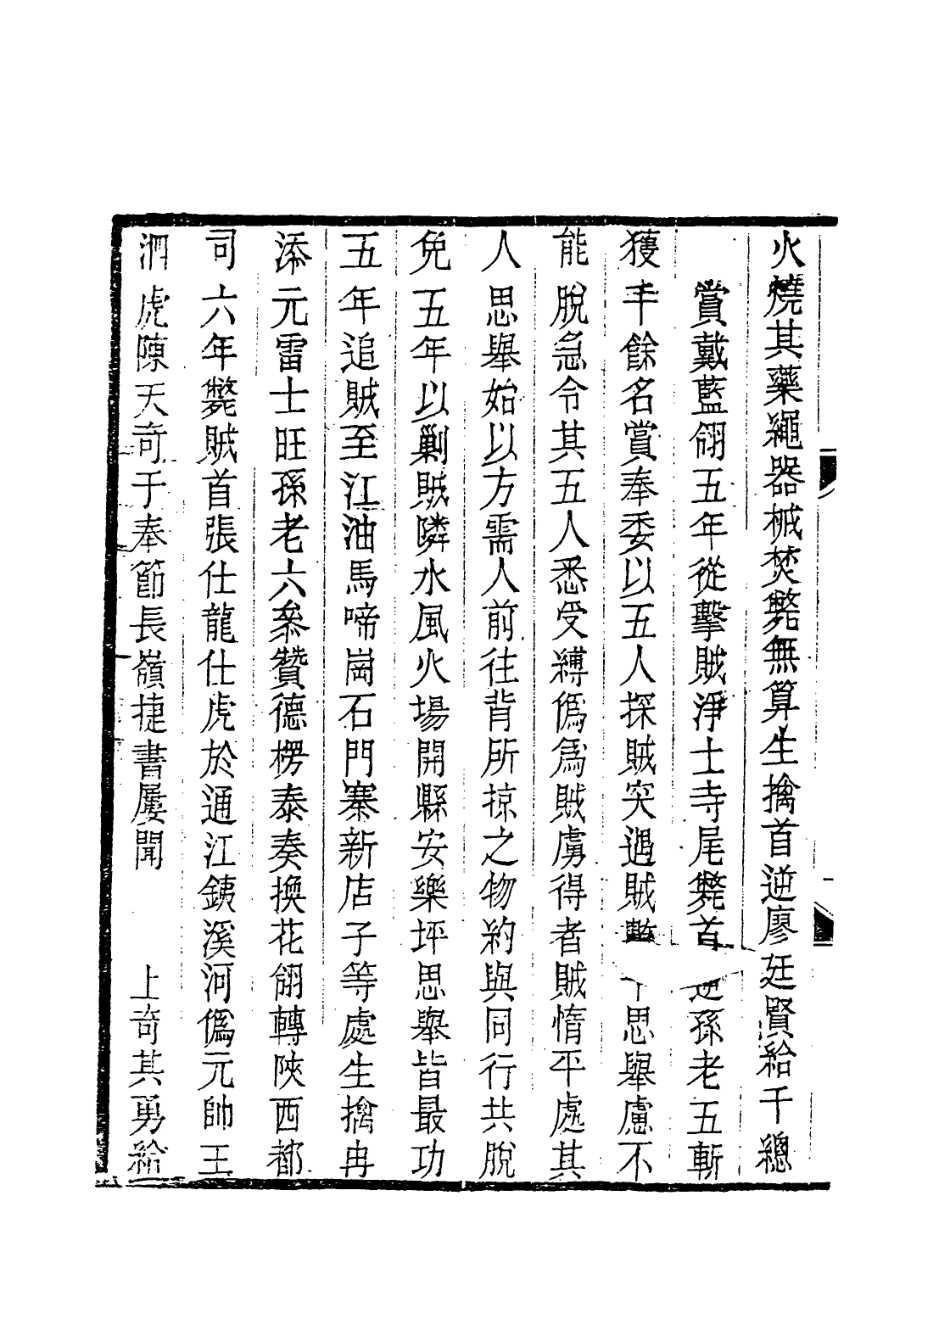 火燒其藥繩器械焚斃無算生擒首逆廖廷賢給千總
賞戴藍翎五年從擊賊淨土寺尾斃首逆孫老五斬
獲千餘名賞奉委以五人探賊突遇賊數千思舉慮不
能脫急令其五人悉受縛僞爲賊虜得者賊惰平處其
人思舉始以方需人前往背所掠之物約與同行共脫
免五年以剿賊隣水風火場開縣安樂坪思舉皆最功
五年追賊至江油馬啼崗石門寨新店子等處生擒冉
添元雷士旺孫老六叅贊德楞泰奏換花翎轉陝西都
司六年斃賊首張仕龍仕虎於通江銕溪河僞元帥王
泗虎陳天奇于奉節長嶺捷書屢聞 上奇其勇給